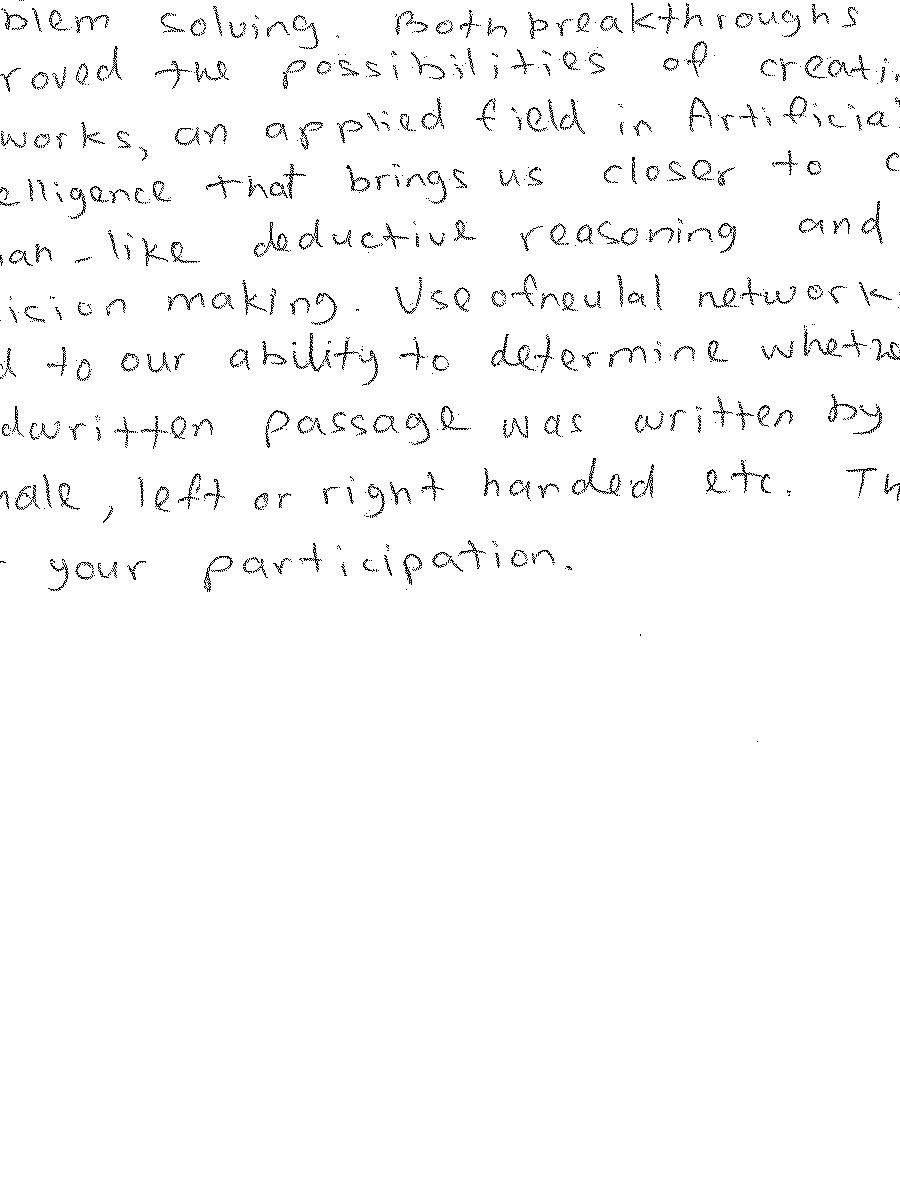 blem solving. Both breakthroughs
roved the possibilities of creati
works, an applied field in Artificial
elligence that brings us closer to
an-like deductive reasoning and
icion making. Use of neulal network
d to our ability to determine whethe
dwritten passage was written by
nale, left or right handed etc. Th
your participation.